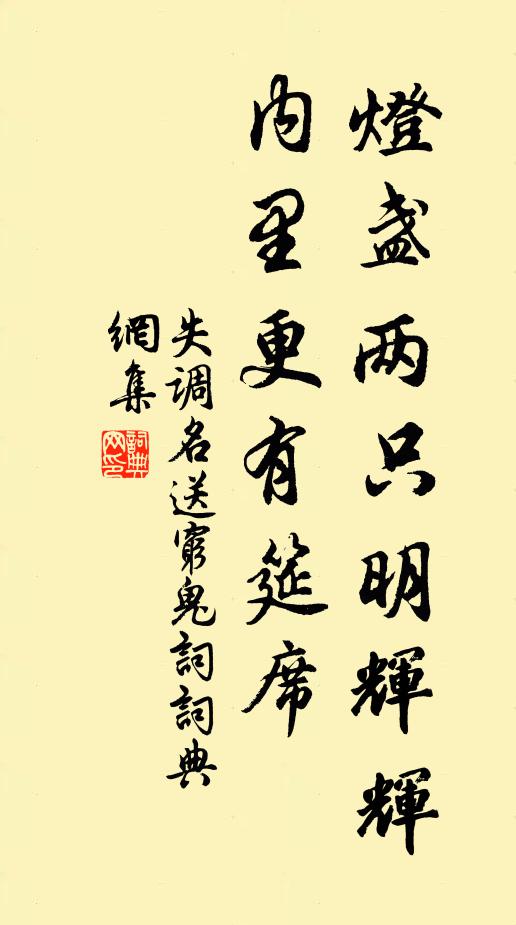 燈盞两只明輝輝
内里更有筵席
失调名送窮鬼詞詞典
網集
詞典网印